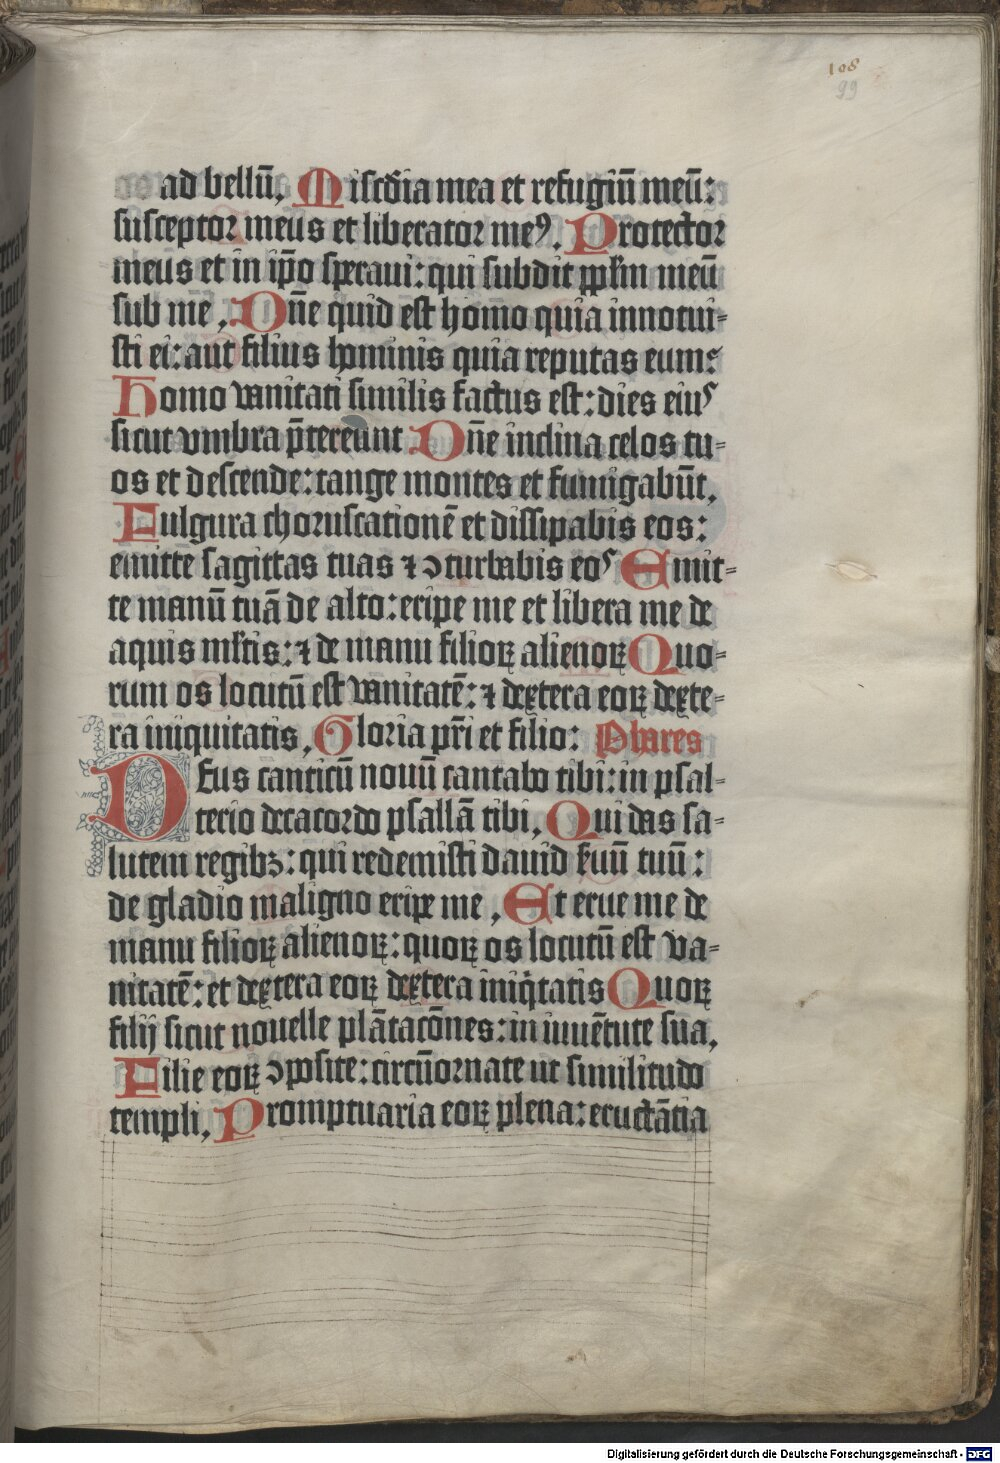 108
99
ad bellū, Miſcd̄ia mea et refugiū meū:
ſuſceptor meus et liberator meꝰ. Protector
meus et in ip̄o ſperaui: qui ſubdit pp̄lm meū
ſub me, Dn̄e quid est homo quia innotui-
ſti ei: aut filius hominis quia reputas eum:
Homo vanitati ſimilis factus eſt: dies eius
ſicut vmbra p̄tereunt Dn̄e inclina celos tu-
os et deſcende: tange montes et fumigabūt,
Fulgura choruſcationē et diſſipabis eos:
emitte ſagittas tuas ⁊ ↄturbabis eos Emit-
te manū tuā de alto: eripe me et libera me de
aquis ml̄tis: ⁊ de manu filioꝝ alienoꝝ Quo-
rum os locutū eſt vanitatē: ⁊ dextera eoꝝ dexte-
ra iniquitatis, Gloria pr̄i et filio: Plures
Deus canticū nouū cantabo tibi: in pſal-
terio decacordo pſallā tibi, Qui das ſa-
lutem regibꝫ: qui redemiſti dauid ſ̄uū tuū:
de gladio maligno eripe me, Et erue me de
manu filioꝝ alienoꝝ: quoꝝ os locutū eſt va-
nitatē: et dextera eoꝝ dextera iniq̄tatis Quoꝝ
filij ſicut nouelle plātacōnes: in iuuētute ſua,
Filie eoꝝ ↄpoſite: circūornate ut ſimilitudo
templi, Promptuaria eoꝝ plena: eructātia
Digitalisierung gefördert durch die Deutsche Forschungsgemeinschaft - DFG